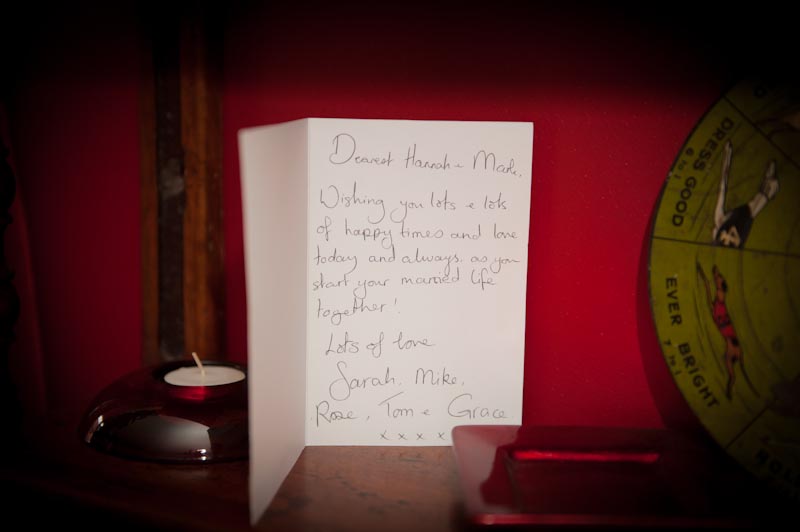 Dearest Hannah & Mark,
Wishing you lots & lots
of happy times and love
today and always as you
start your married life
together!
Lots of love
Sarah, Mike,
Rose, Tom & Grace
x x x x
DRESS GOOD
6 to 1
EVER BRIGHT
7 to 1